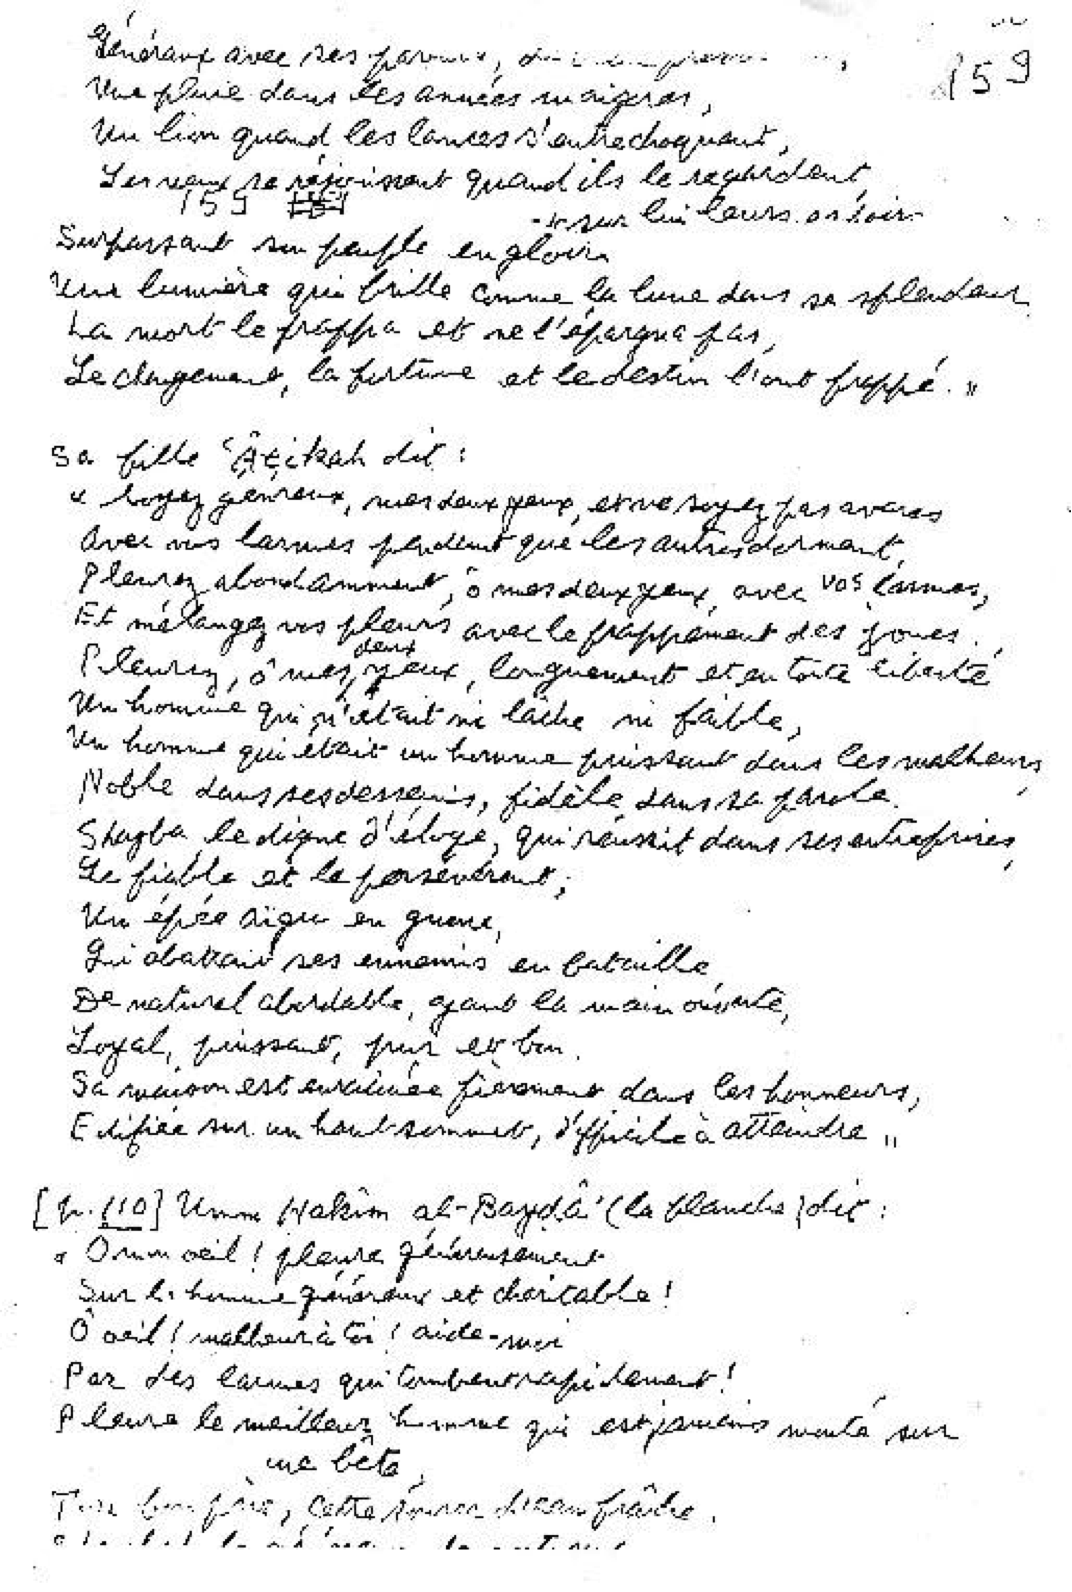 159
Généraux avec ses parents,
Une pluie dans les années maigres,
Un lion quand les lances s'entrechoquent,
Les yeux se réjouissent quand ils le regardent,
159
sur lui leurs
Surpassant son peuple en gloire
Une lumière qui brille comme la lune dans sa splendeur.
La mort le frappa et ne l'épargna pas,
Le changement, la fortune et le destin l'ont frappé. »
Sa fille 'Âtikah dit :
« Soyez généreux, mes deux yeux, et ne soyez pas avares
Avec vos larmes pendant que les autres dorment,
Pleurez abondamment, ô mes deux yeux, avec vos larmes,
Et mélangez vos pleurs avec le frappement des joues.
Pleurez, ô mes deux yeux, longuement et en toute liberté
Un homme qui n'était ni lâche ni faible,
Un homme qui était un homme puissant dans les malheurs,
Noble dans ses desseins, fidèle dans sa parole.
Shayba le digne d'éloge, qui réussit dans ses entreprises,
Le fiable et le persévérant ;
Un épée aigue en guerre,
Qui abattait ses ennemis en bataille,
De naturel abordable, ayant la main ouverte,
Loyal, puissant, pur et bon.
Sa maison est enracinée fièrement dans les honneurs,
Edifiée sur un haut sommet, difficile à atteindre »
[p. 110] Umm Hakîm al-Baydâ' (la blanche) dit :
« O mon oeil ! pleure généreusement
Sur l' homme généreux et charitable !
Ô oeil ! malheur à toi ! aide-moi
Par des larmes qui tombent rapidement !
Pleure le meilleur homme qui est jamais monté sur
une bête,
Ton bon père, cette source d'eau fraîche.